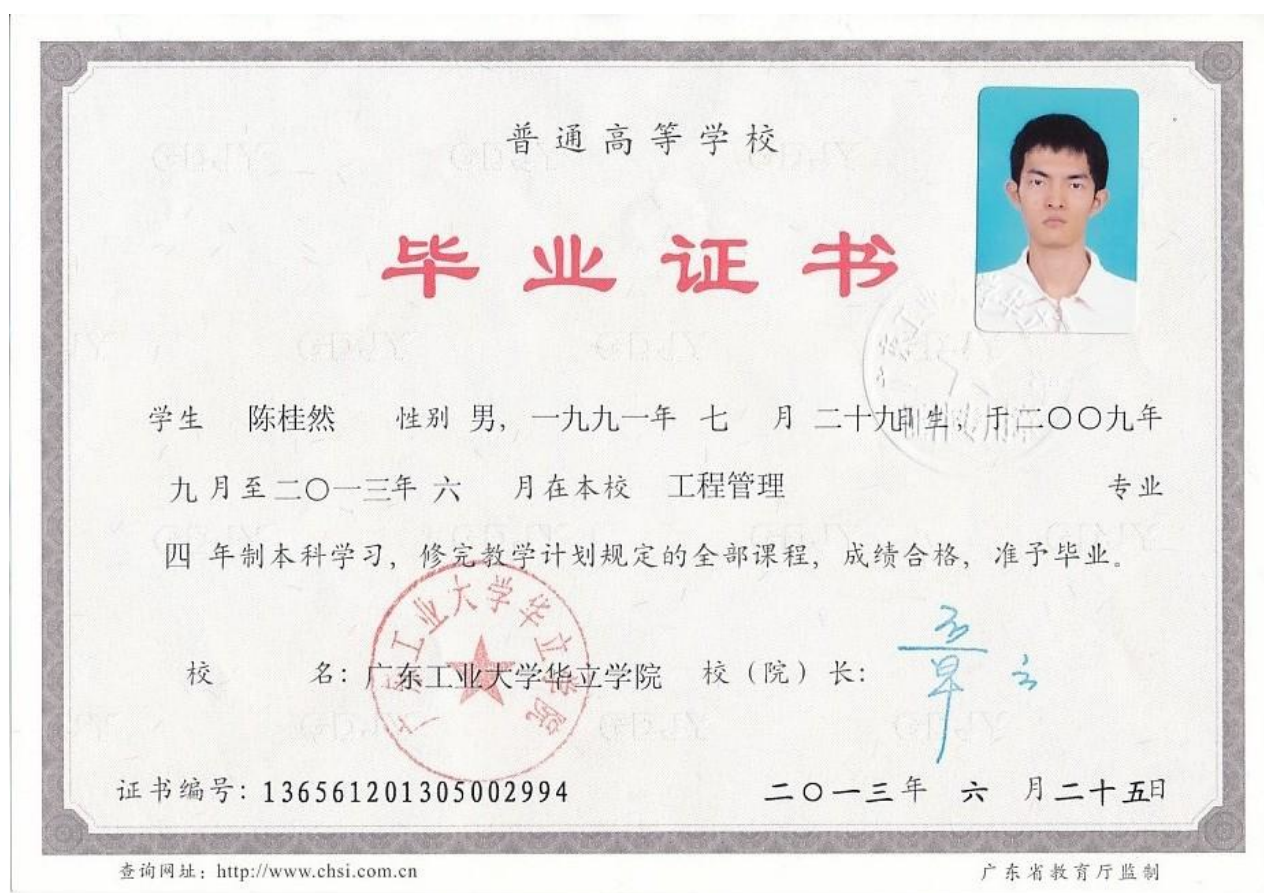 普通高等学校
毕业证书
学生 陈桂然 性别 男，一九九一年 七 月 二十九日生，于二〇〇九年
九月至二〇一三年 六 月在本校 工程管理 专业
四 年制本科学习，修完教学计划规定的全部课程，成绩合格，准予毕业。
广东工业大学华立学院
校 名：广东工业大学华立学院 校（院）长：
证书编号：136561201305002994 二〇一三年 六 月二十五日
查询网址：http://www.chsi.com.cn 广东省教育厅监制